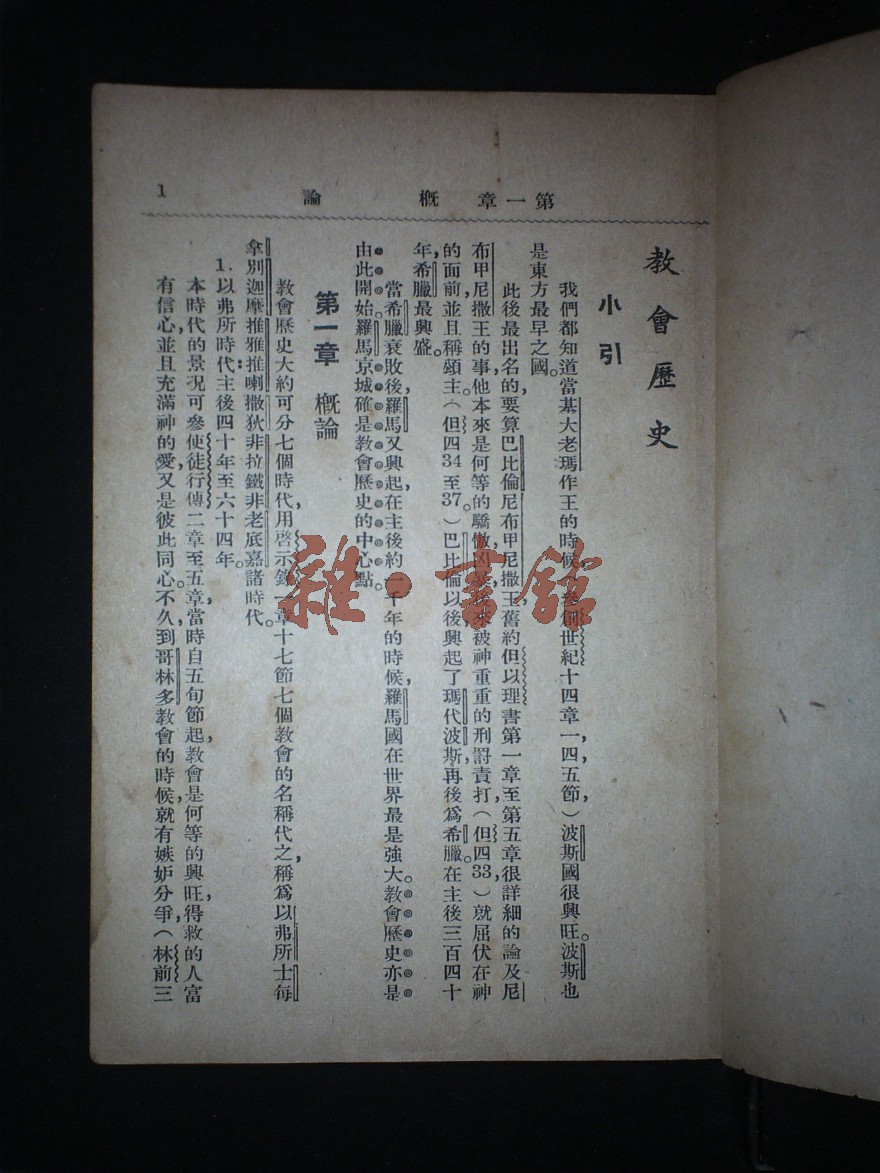 第一章 概論 1
教會歷史
小引
我們都知道,當基大老瑪作王的時候,(參創世紀十四章一,四,五節,)波斯國很興旺。波斯也
是東方最早之國。
此後最出名的,要算巴比倫尼布甲尼撒王,舊約但以理書第一章至第五章很詳細的論及尼
布甲尼撒王的事,他本來是何等的驕傲凶後來被神重重的刑罰責打(但四33,)就屈伏在神
的面前,並且稱頌主。(但四34至37。)巴比倫以後興起了瑪代波斯,再後爲希臘。在主後三百四十
年,希臘最興盛。
當希臘衰敗後,羅馬又興起在主後約一千年的時候,羅馬國在世界最是強大。教會歷史亦是
由此開始。羅馬京城確是教會歷史的中心點。
第一章 概論
教會歷史大約可分七個時代,用啓示錄一章十七節七個教會的名稱代之,稱爲以弗所士每
拿別迦摩推雅推喇撒狄非拉鐵非老底嘉諸時代。
1.以弗所時代:主後四十年至六十四年。
本時代的景況可參使徒行傳二章至五章,當時自五旬節起,教會是何等的興旺,得救的人富
有信心,並且充滿神的愛,又是彼此同心。不久,到哥林多教會的時候,就有嫉妒分爭,(林前三
雜·書館